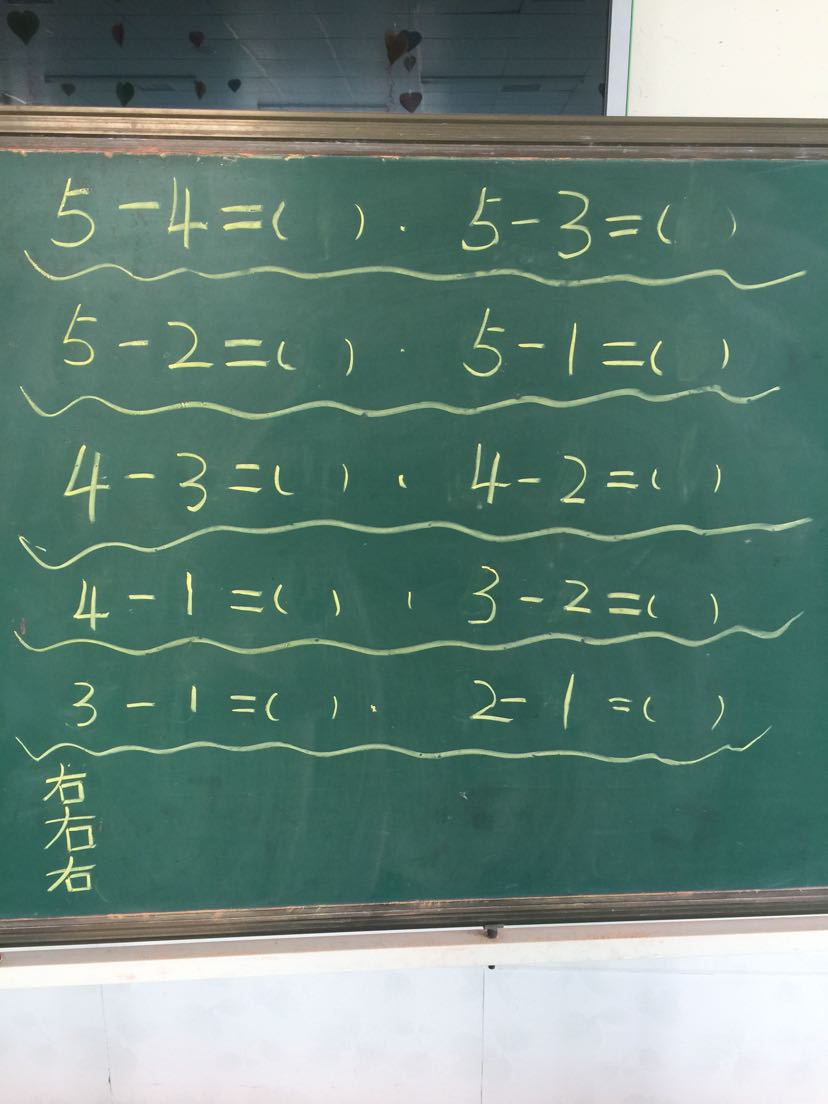 5-4=( ). 5-3=( )
5-2=( ). 5-1=( )
4-3=( ). 4-2=( )
4-1=( ). 3-2=( )
3-1=( ). 2-1=( )
右
右
右